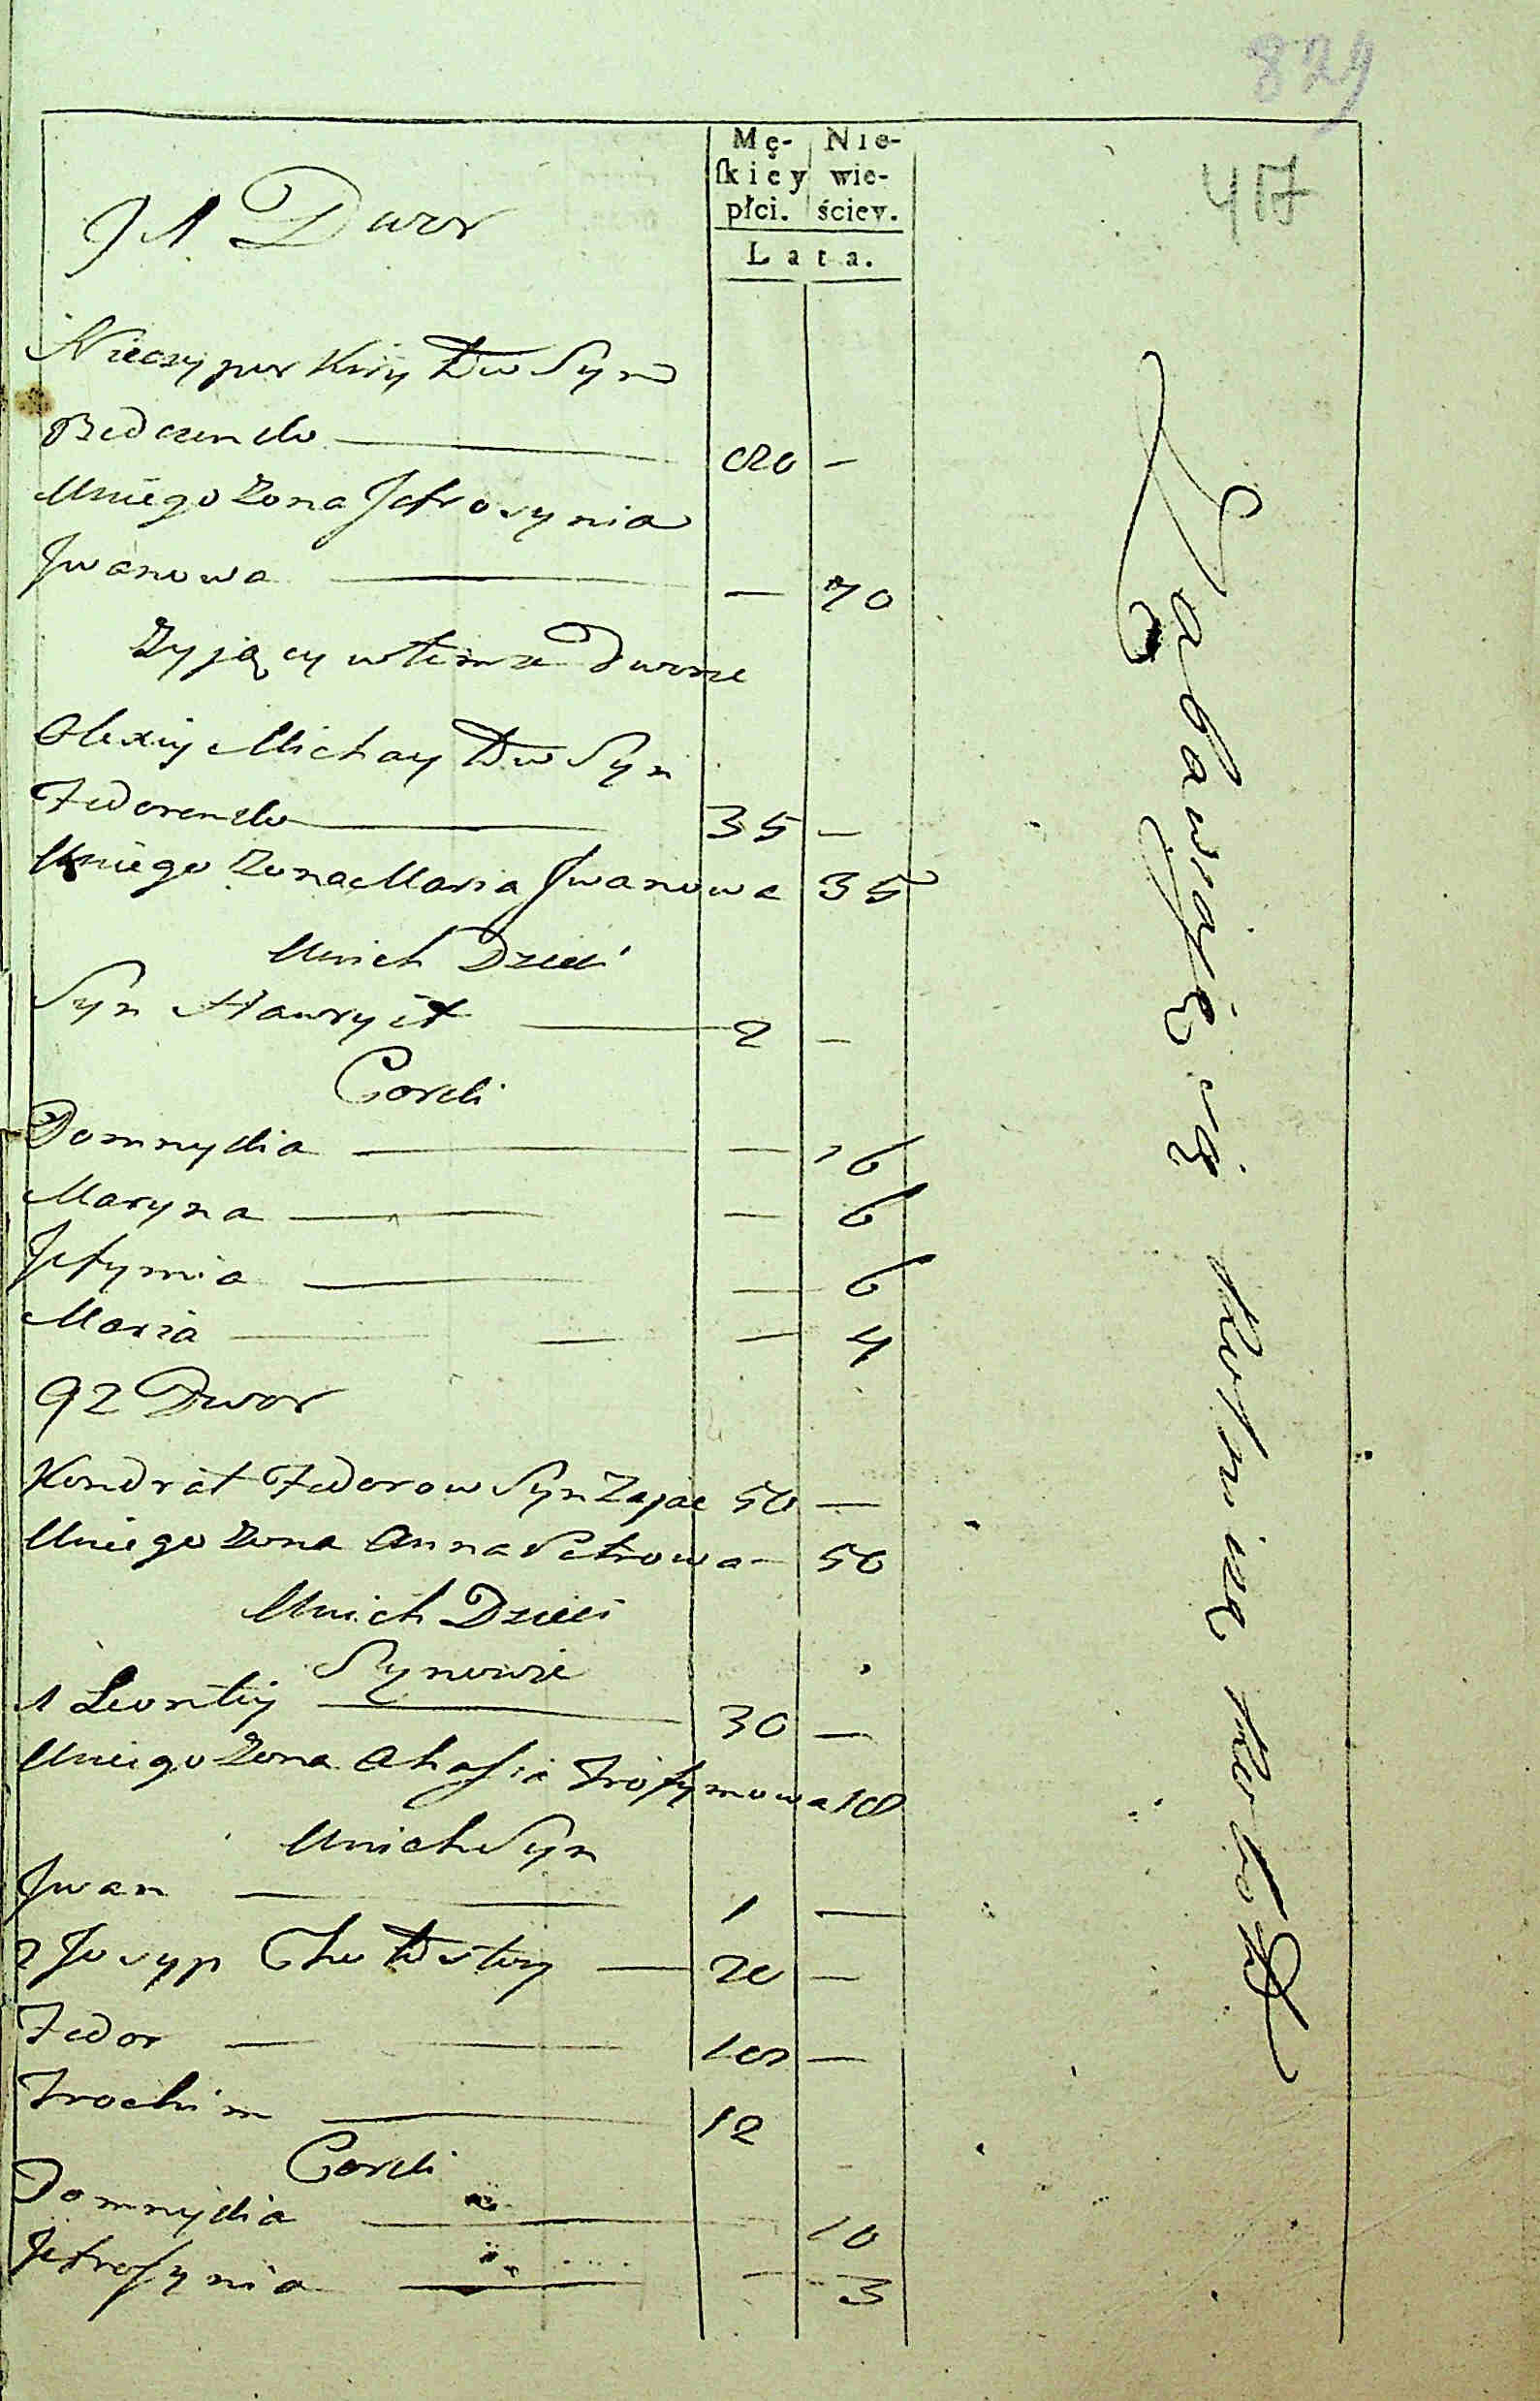 829
417
Mę-skiey płci. Nie-wieściey.
Lata.
91 Dwor
Nieczypor Kiry Dw Syn
Bedczenko — 80 —
Uniego Zona Jefrosynia
Jwanowa — — 70
Zyjący wtimze Dworze
Olexiy Michay Dw Syn
Fedorenko — 35 —
Uniego Zona Maria Jwanowa 35
Unich Dzieci
Syn Hawryił — 2 —
Corki
Domnykia — — 16
Maryna — — 6
Jefymia — — 6
Maria — — 4
92 Dwor
Kondrat Fedorow Syn Zajac 50 —
Uniego Zona Anna Petrowa — 50
Unich Dzieci
Synowie
1 Leontiy — 30 —
Uniego Zona Ahafia Trofymowa 18
Unich Syn
Jwan — 1 —
2 Josyp — 20 —
Fedor — —
Trochim — 12
Corki
Domnykia — 10
Jefrosynia — — 3